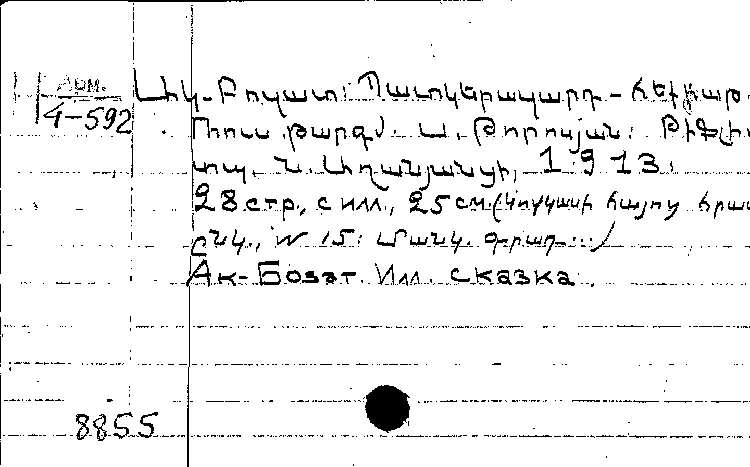 Арм.
4-592
Ակ-Բոզատ: Պատկերազարդ - հեքիաթ.
Ռուս. թարգմ. Ա. Թորոսյան: Թիֆլի
տպ. Ն. Աղանյանցի, 1913:
28 стр., с илл., 25 см. (Կովկասի հայոց հրա
ընկ., № 15: Մանկ. գրադ...)
Ак-Бозат. Илл. сказка.
8855